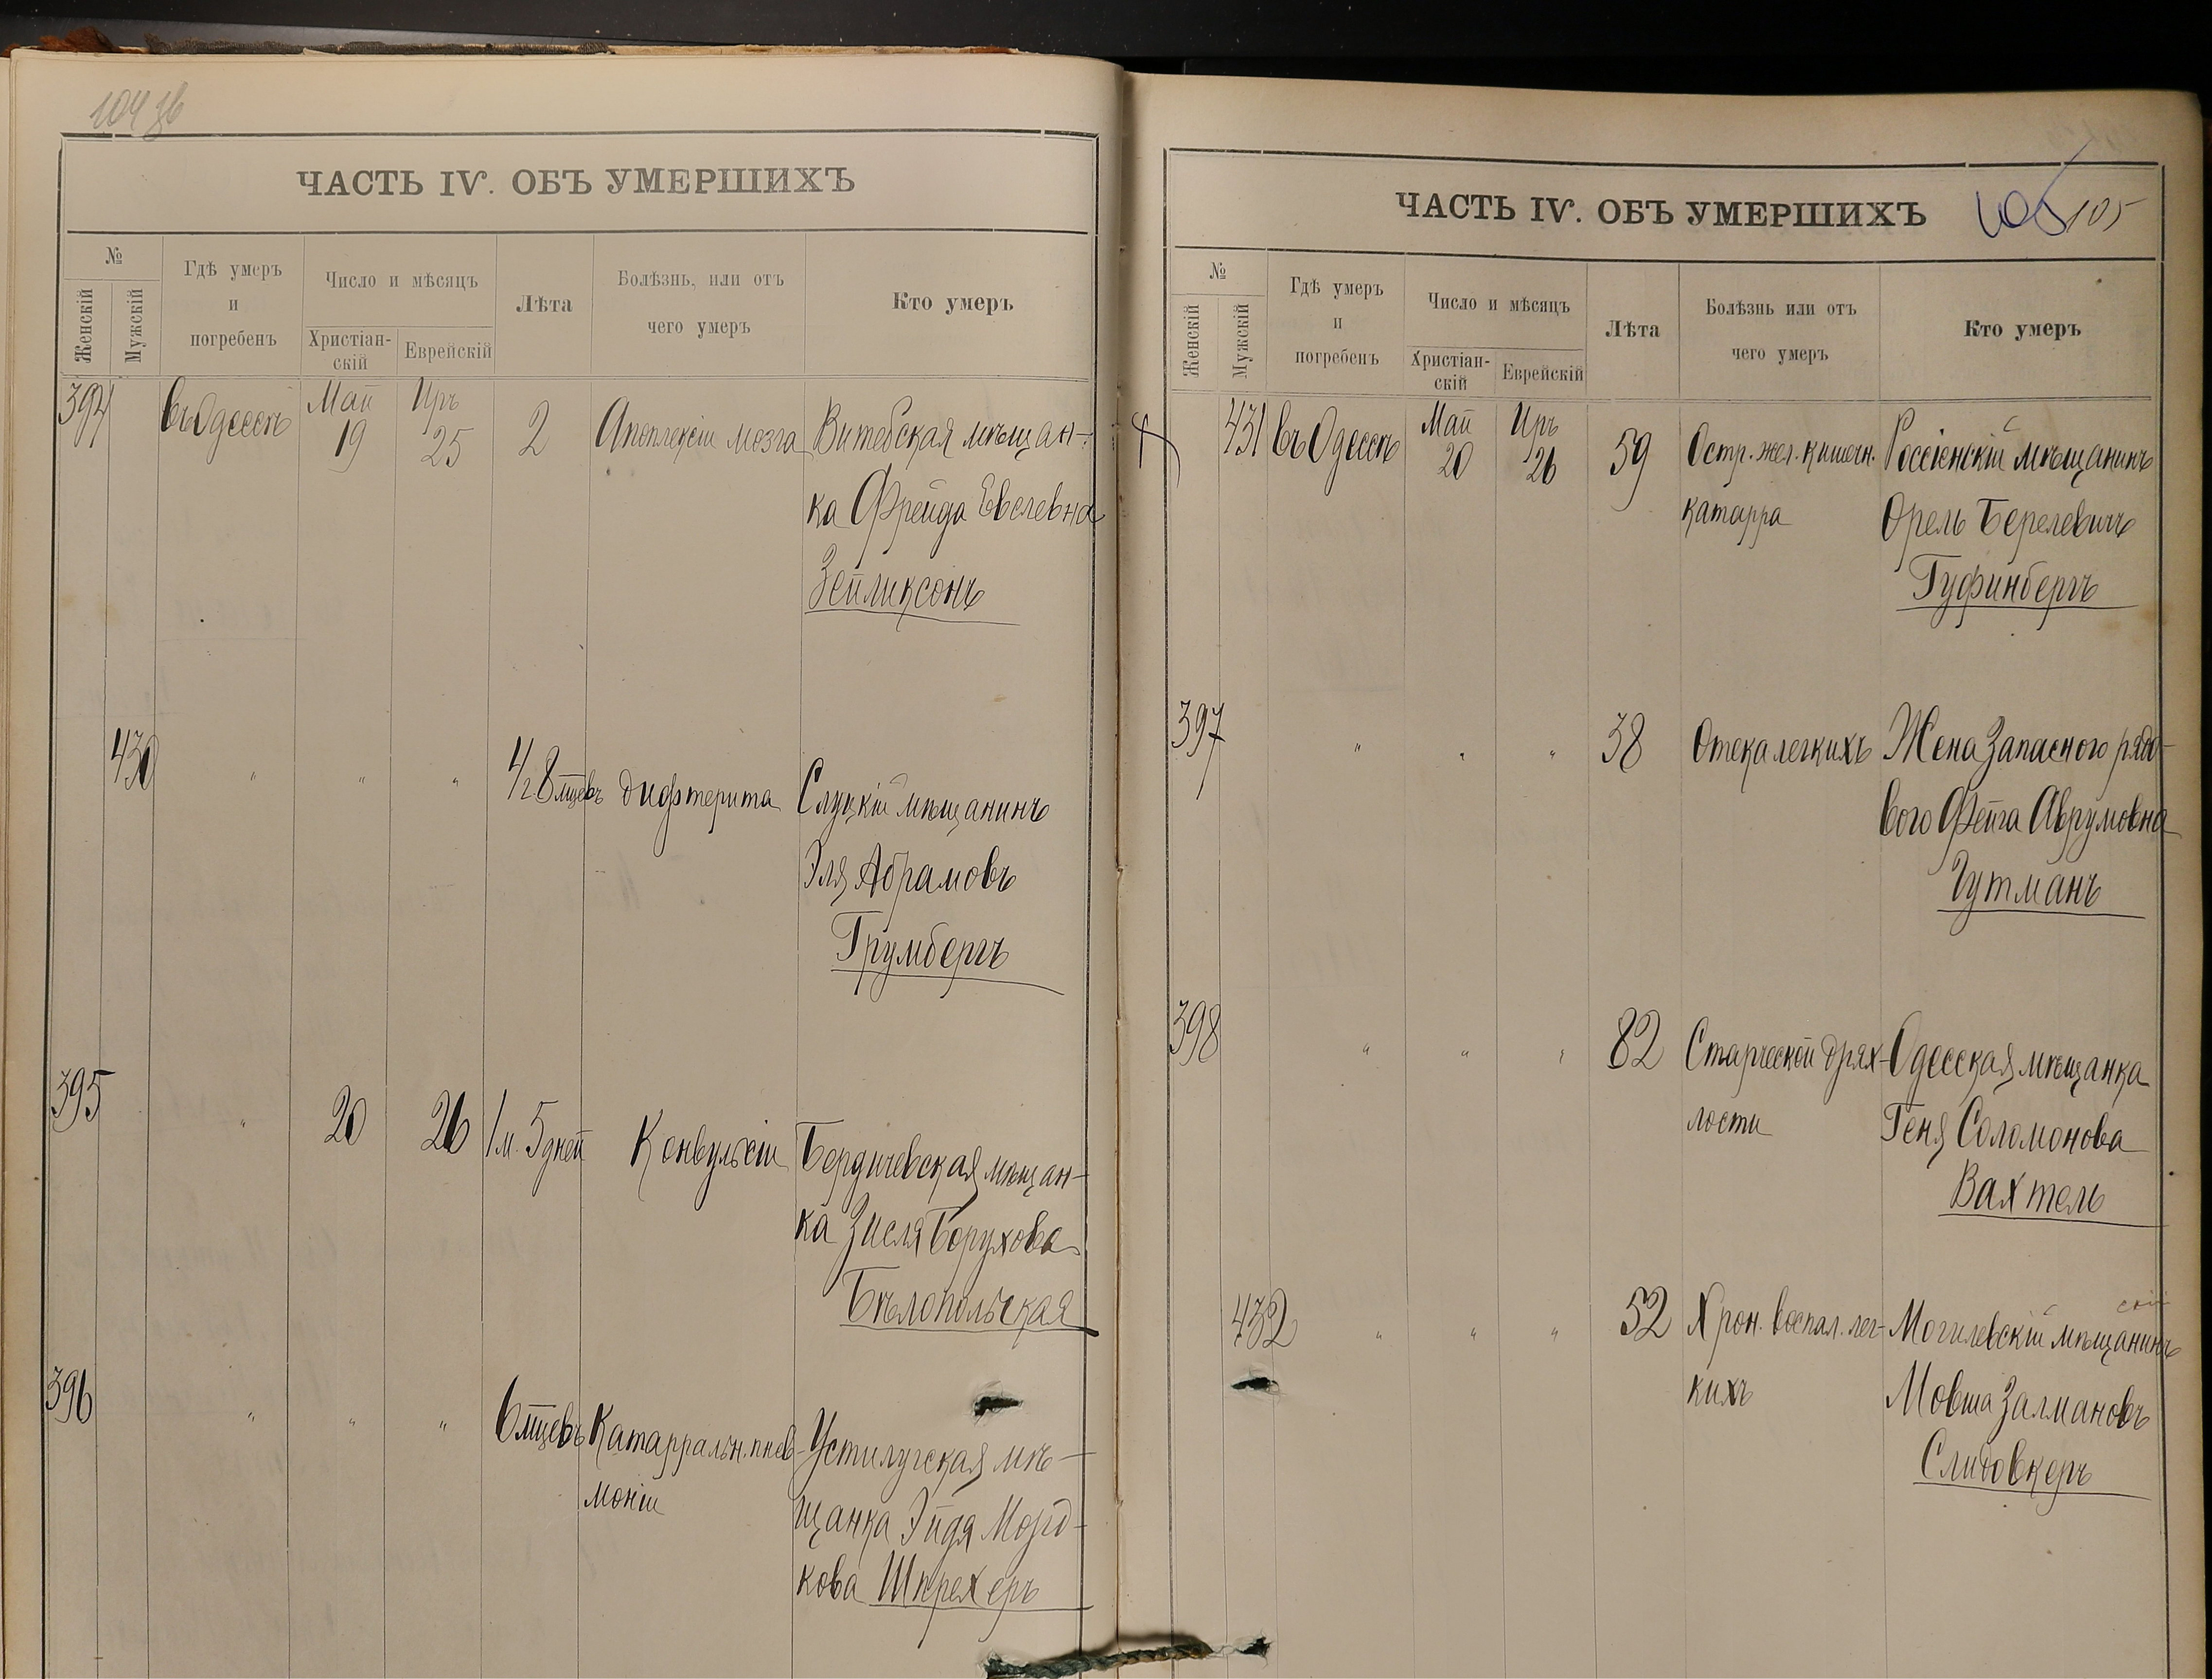 104 зв
ЧАСТЬ IV. ОБЪ УМЕРШИХЪ
№
Женскій
Мужскій
Гдѣ умеръ
и
погребенъ
Число и мѣсяцъ
Христіан-
скій
Еврейскій
Лѣта
Болѣзнь, или отъ
чего умеръ
Кто умеръ
394 въ Одессѣ Май Иръ 2 Апоплексіи мозга Витебская мѣщан-
19 25
ка Фрейда Евелевна
Зейликсонъ
430 " " " 1/2 8 мцевъ дифтерита Слуцкій мѣщанинъ
Эля Абрамовъ
Грумбергъ
395 " 20 26 1 м. 5 дней Конвульсіи Бердичевская мѣщан-
ка Зисля Борухова
Бѣлопольская
396 " " " 6 мцевъ Катарральн. пнев- Устилугская мѣ-
моніи щанка Эйдя Морд-
кова Шпрехеръ
ЧАСТЬ IV. ОБЪ УМЕРШИХЪ
105 105
№
Женскій
Мужскій
Гдѣ умеръ
и
погребенъ
Число и мѣсяцъ
Христіан-
скій
Еврейскій
Лѣта
Болѣзнь или отъ
чего умеръ
Кто умеръ
431 въ Одессѣ Май Иръ 59 Остр. жел. кишечн. Россіенскій мѣщанинъ
20 26
катарра Орель Берелевичъ
Гуфинбергъ
397 " " " 38 Отека легкихъ Жена Запасного рядо-
вого Фейга Аврумовна
Гутманъ
398 " " " 82 Старческой дрях- Одесская мѣщанка
лости Геня Соломонова
Вахтель
432 " " " 52 Хрон. воспал. лег- Могилевскій мѣщанинъ
кихъ Мовша Залмановъ
Слидовкеръ